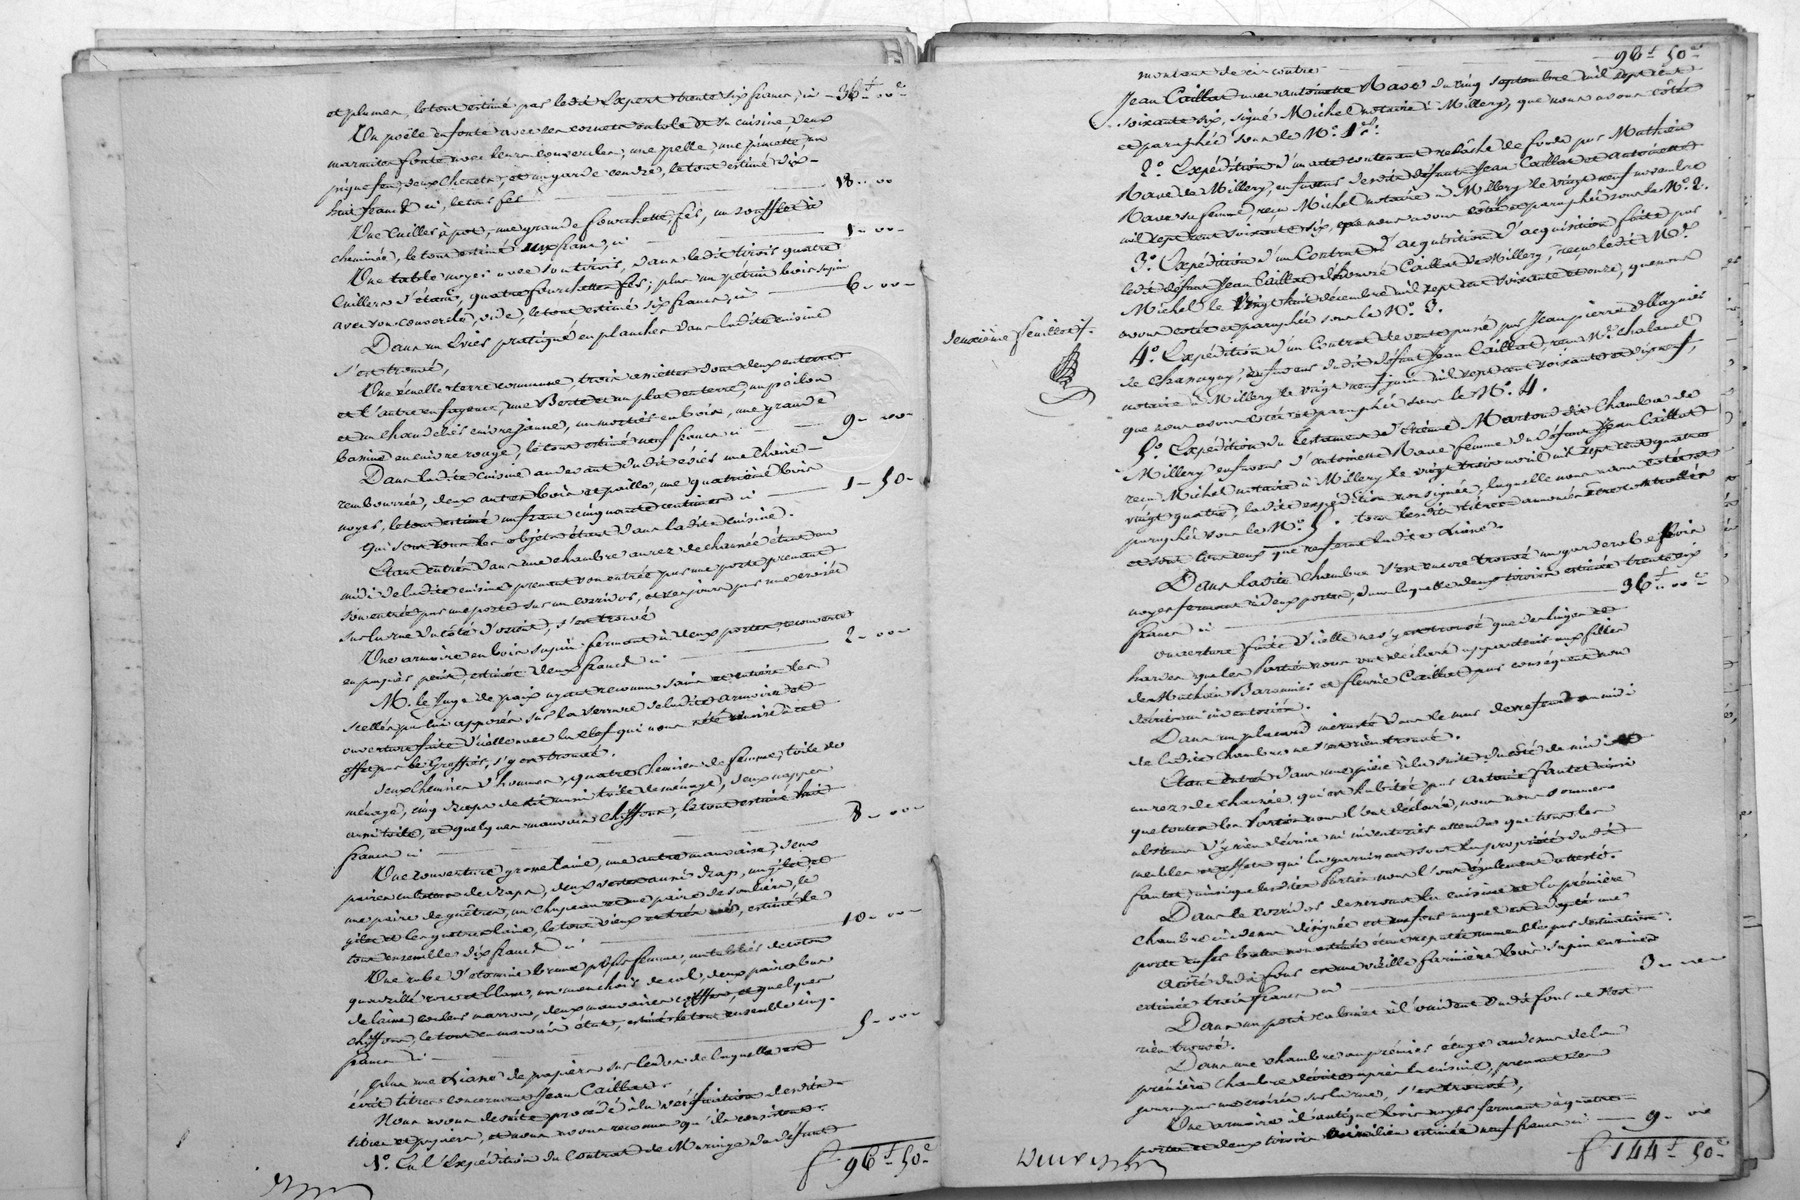 et plumes, le tout estimé par le dit Expert trente six francs, ci - 36 f .. 00 c
Un poële en fonte avec ses cornets en tole de la cuisine deux
marmites fonte avec leurs couvercles, une pelle, une pincette, un
pique feu, deux chenets, et un garde cendre, le tout estimé dix-
huit francs ci, le tout fer 18 .. 00
Une cuiller à pot, une grande fourchette, fer, un soufflet à
cheminée, le tout estimé un franc, ci 1 - 00 -
Une table noyer avec son tiroir, dans le dit tiroir quatre
cuillers d'étain, quatre fourchettes fer, plus un pétrin bois sapin
avec son couvercle, vide, le tout estimé six francs, ci 6 - 00 -
Dans un Evier pratiqué en planches dans la dite cuisine
s'est trouvé,
Vaisselle terre commune, trois assiettes dont deux en terre
et l'autre en fayence, une Berte et un plat en terre, un poëlon
et un chandelier cuivre jaune, un mortier en bois, une grande
bassine en cuivre rouge, le tout estimé neuf francs ci 9 - 00 -
Dans la dite cuisine au devant du dit évier une chaise
rembourrée, deux autres bois et paille, une quatrième bois
noyer, le tout estimé un franc cinquante centimes ci 1 - 50 -
Qui sont tous les objets étant dans la dite cuisine.
Etant entrés dans une chambre au rez de chaussée étant au
midi de la dite cuisine prenant son entrée par une porte prenant
son entrée par une porte sur un corridor, et ses jours par une croisée
sur la rue du côté d'orient, s'est trouvé
Une armoire en bois sapin fermant à deux portes, recouverte
en papier peint, estimée deux francs ci 2 - 00 -
M. le Juge de paix ayant reconnu sains et entiers les
scellés par lui apposés sur la serrure de la dite armoire et
ouverture faite d'icelle avec la clef qui nous a été remise à cet
effet par le Greffier, s'y est trouvé.
deux chemises d'homme, quatre chemises de femme, toile de
ménage, cinq draps de lit aussi toile de ménage, deux nappes
aussi toile, et quelques mauvais chiffons, le tout estimé huit
francs ci 8 - 00 -
Une couverture grosse laine, une autre mauvaise, deux
paires culottes de draps, deux vestes aussi drap, un gilet, et
une paire de guêtres, un chapeau et une paire de souliers, le
gilet et les guetres laine, le tout vieux et très usé, estimé le
tout ensemble dix francs ci 10 - 00 -
Une robe d'étamine brune pour femme, un tablier de coton
quadrillé rose et blanc, un mouchoir de col, deux paires bas
de laine, couleur marron, deux mauvaises coiffes, et quelques
chiffons, le tout en mauvais état, estimé le tout ensemble cinq
francs ci 5 - 00 -
plus une Liasse de papiers sur le dos de laquelle est
écrit titres concernant Jean Caillat
Nous avons de suite procédé à la vérification des dits
titres et papiers, et nous avons reconnu qu'ils consistent
1.º En l'Expédition du Contrat de Mariage du deffunt
f 96 f 50 c
montant de ci-contre 96 f 50 c
Jean Caillat avec antoinette Rave du cinq septembre mil sept cent
soixante six, signé Michel notaire à Millery, que nous avons côté
et paraphée sous le Nº 1er
2º Expédition d'un acte contenant relâche de fonds par Mathieu
Rave de Millery, en faveur desdits défunt Jean Caillat et antoinette
Rave sa femme, reçu Michel notaire à Millery le vingt neuf novembre
mil sept cent soixante six, que nous avons coté et paraphée sous le Nº 2.
3º Expédition d'un Contrat d'acquisition d'acquisition faite par
ledit défunt Jean Caillat d'honoré Caillat de Millery, reçu ledit Mº
Michel le vingt huit décembre mil sept cent soixante et onze, que nous
avons cotée et paraphée sous le Nº 3.
deuxième feuillet
4º Expédition d'un Contrat de vente passé par Jean pierre Magnier
de Chassagny, en faveur du dit défunt Jean Caillat, reçu Mº Chalanel
notaire à Millery le vingt neuf juin mil sept cent soixante et dix neuf,
que nous avons cotée et paraphée sous le Nº 4.
5º Expédition du testament d'étienne Martoud dit Chambra de
Millery en faveur d'antoinette Rave femme du défunt Jean Caillat
reçu Michel notaire à Millery le vingt trois avril mil sept cent quatre
vingt quatre, la dite expédition non signée, laquelle nous avons cotée et
paraphée sous le Nº 5. tous lesdits titres annoncés être controllés
et sont tous ceux que renferme ladite Liasse.
Dans ladite Chambre s'est encore trouvé un garderobe bois
noyer fermant à deux portes, dans laquelle deux tiroirs estimée trente six
francs ci 36 f .. 00 c
ouverture faite d'icelle ne s'y est trouvé que des linges et
hardes que les Parties nous ont déclaré appartenir aux filles
de Mathieu Baronnier et fleurie Caillat, par conséquent non
décrits ni inventoriés.
Dans un placard incrusté dans le mur de refend au midi
de la dite chambre ne s'est rien trouvé.
Etant entrés dans une pièce à la suite du côté de midi
au rez de chaussée, qui est habitée par Antoine fantet ainsi
que toutes les Parties nous l'ont déclaré, nous nous sommes
abstenus d'y rien décrire ni inventorier attendu que tous les
meubles et effets qui la garnissent sont la propriété du dit
fantet, ainsi que les dites Parties nous l'ont également attesté.
Dans le corridor desservant la cuisine et la première
chambre ci dessus désignée est un four auquel est adaptée une
porte en fer batu non estimée étant réputée immeuble par destination.
A côté dudit four est une vieille farinière bois sapin carrée
estimée trois francs ci 3 - 00 -
Dans un petit cabinet à l'occident dudit four ne s'est
rien trouvé.
Dans une chambre au premier étage au dessus de la
première chambre décrite après la cuisine, prenant ses
jours par une croisée sur la rue, s'est trouvé,
Une armoire à l'antique bois noyer fermant à quatre
portes et deux tiroirs au milieu estimée neuf francs ci 9 - 00
f 144 f 50 c